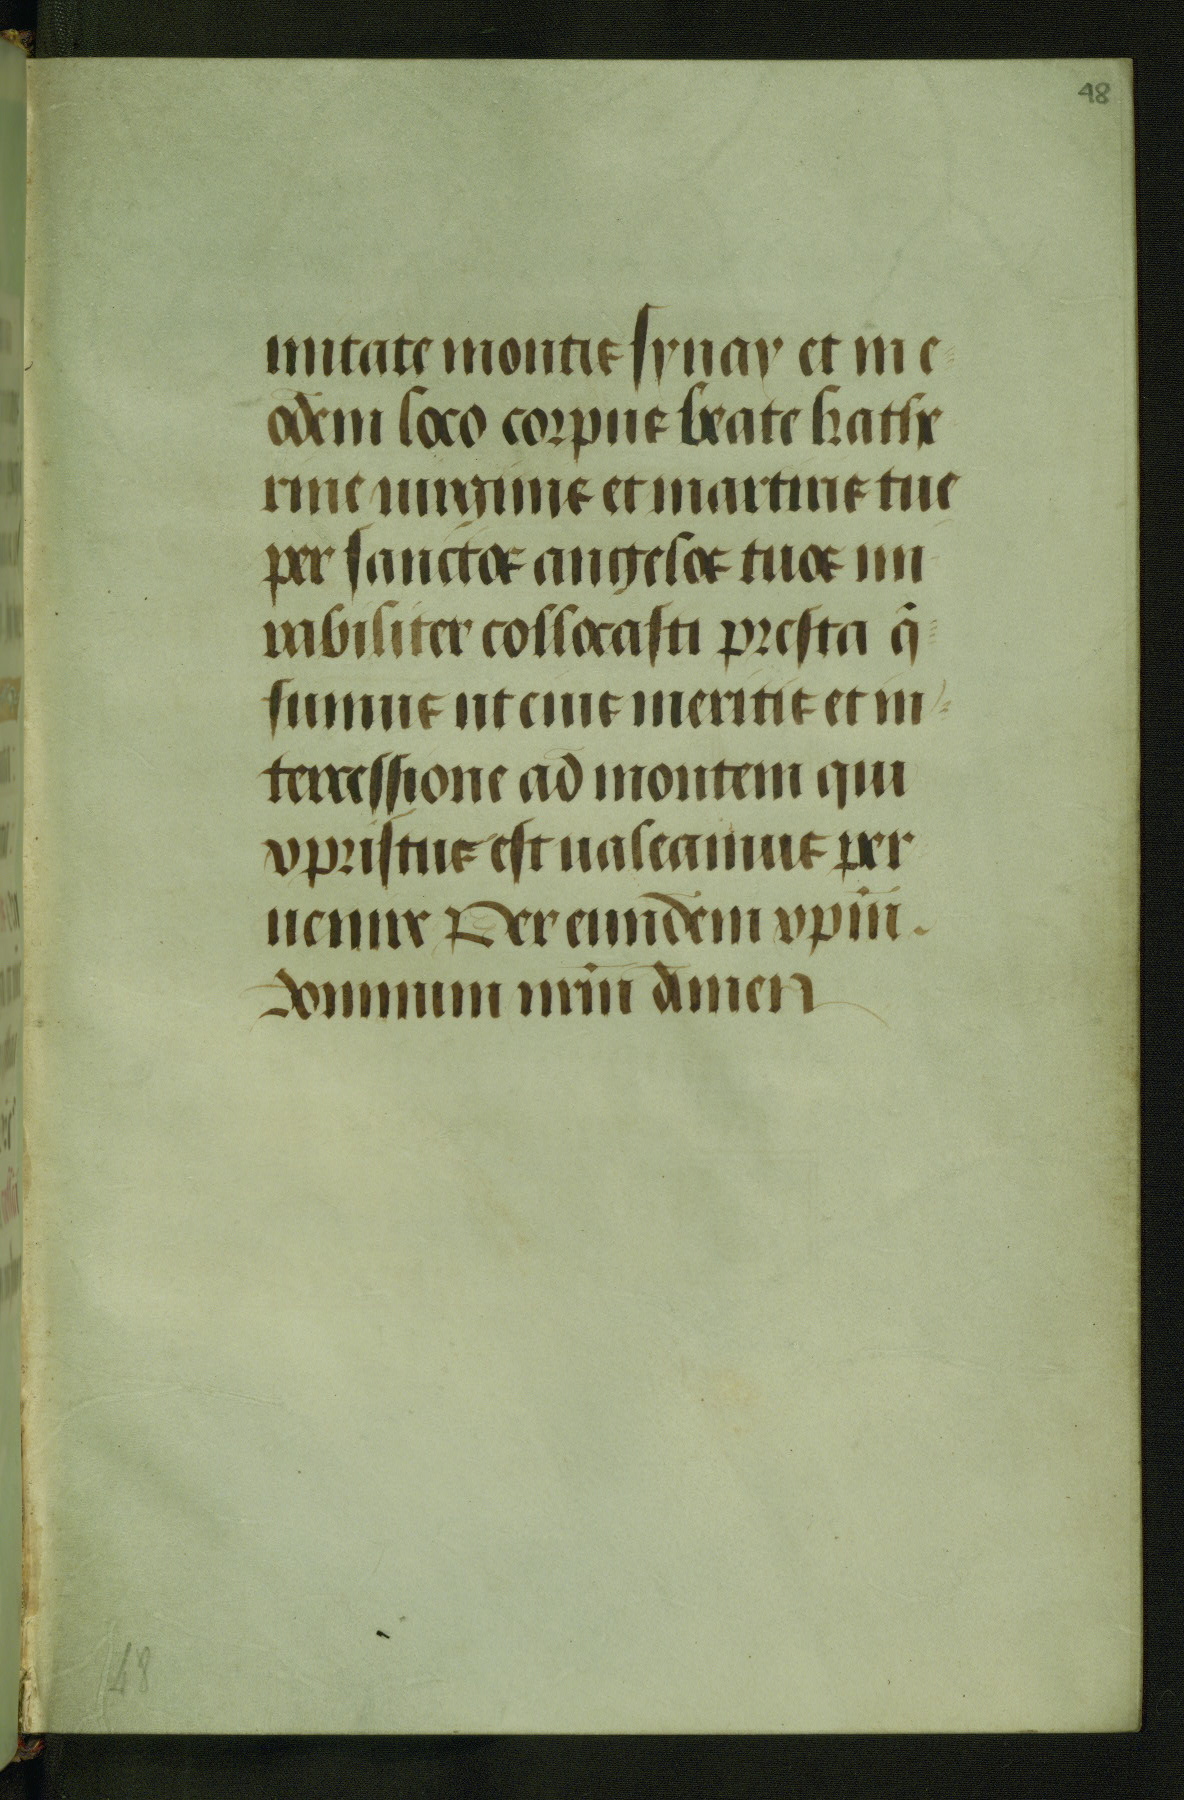 48
mitate montis synay et in e
odem loco corpus beate kathe
rine uirginis et martiris tue
per sanctos angelos tuos mi
rabiliter collocasti presta q̄
sumus ut eius meritis et in
tercessione ad montem qui
xpristus est ualeamus per
uenire Per eundem xpm̄
dominum nrm̄ Amen
48